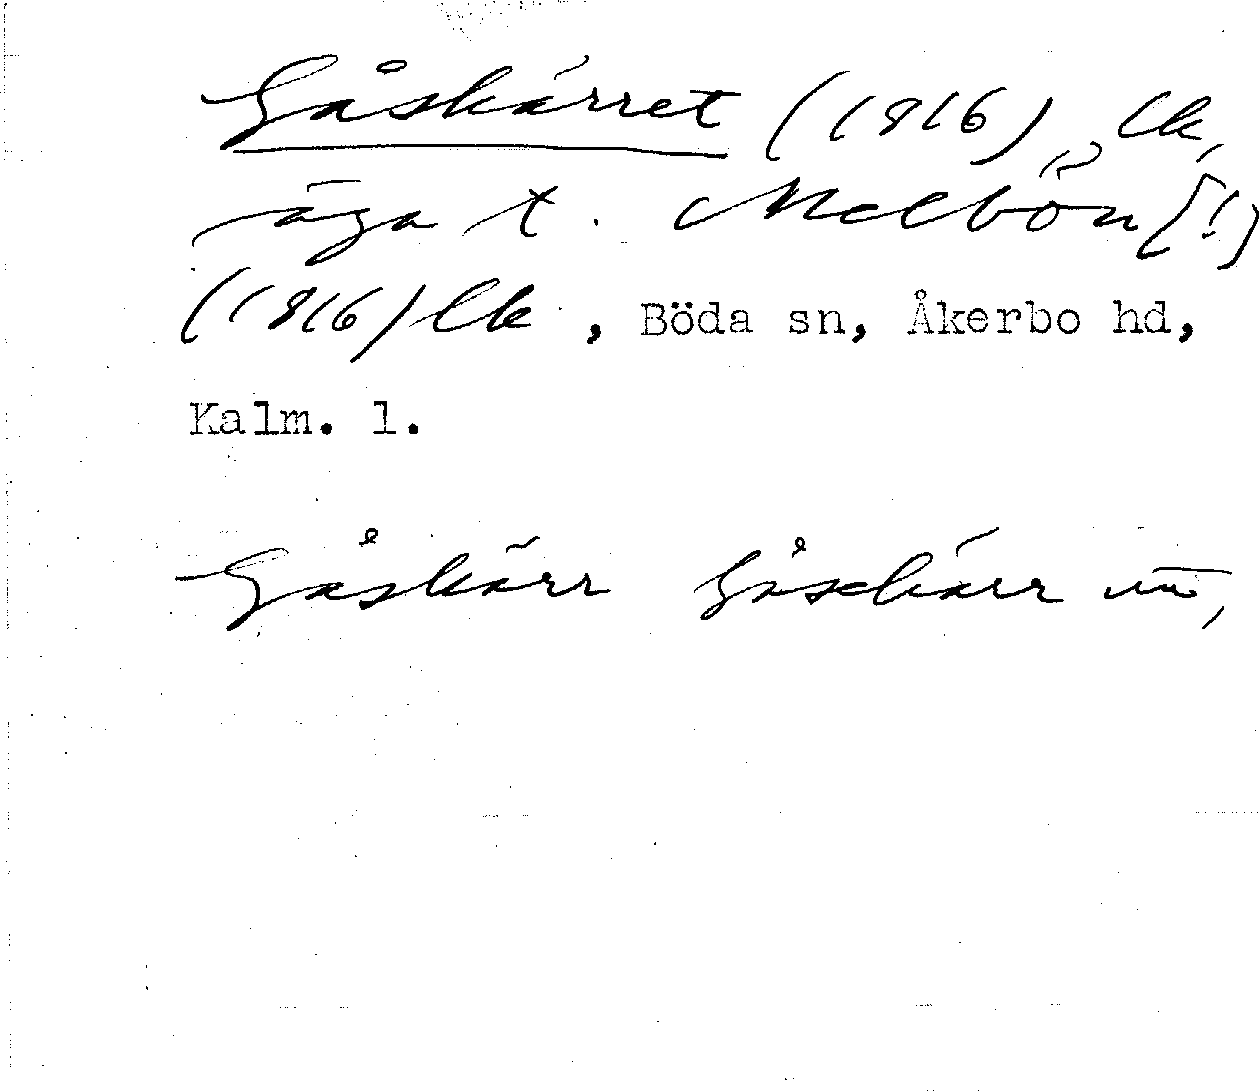 Gåskärret (1816) lk,
äga t. Mellbön [!]
(1816) lk, Böda sn, Åkerbo hd,
Kalm. l.
Gåskärr Gåskärr